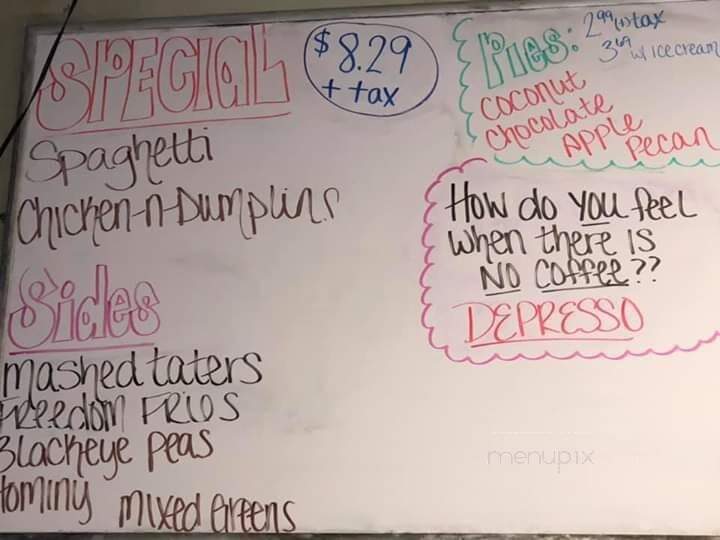 SPECIAL
$8.29
+ tax
Spaghetti
Chicken-n-Dumplins
Sides
mashed taters
FREEdom FRIES
Blackeye peas
Hominy mixed Greens
Pies: 2.99 (+) tax
3.69 w/ ice cream
Coconut
Chocolate
APPLE
Pecan
How do you feel
when there is
NO COFFEE??
DEPRESSO
menupix